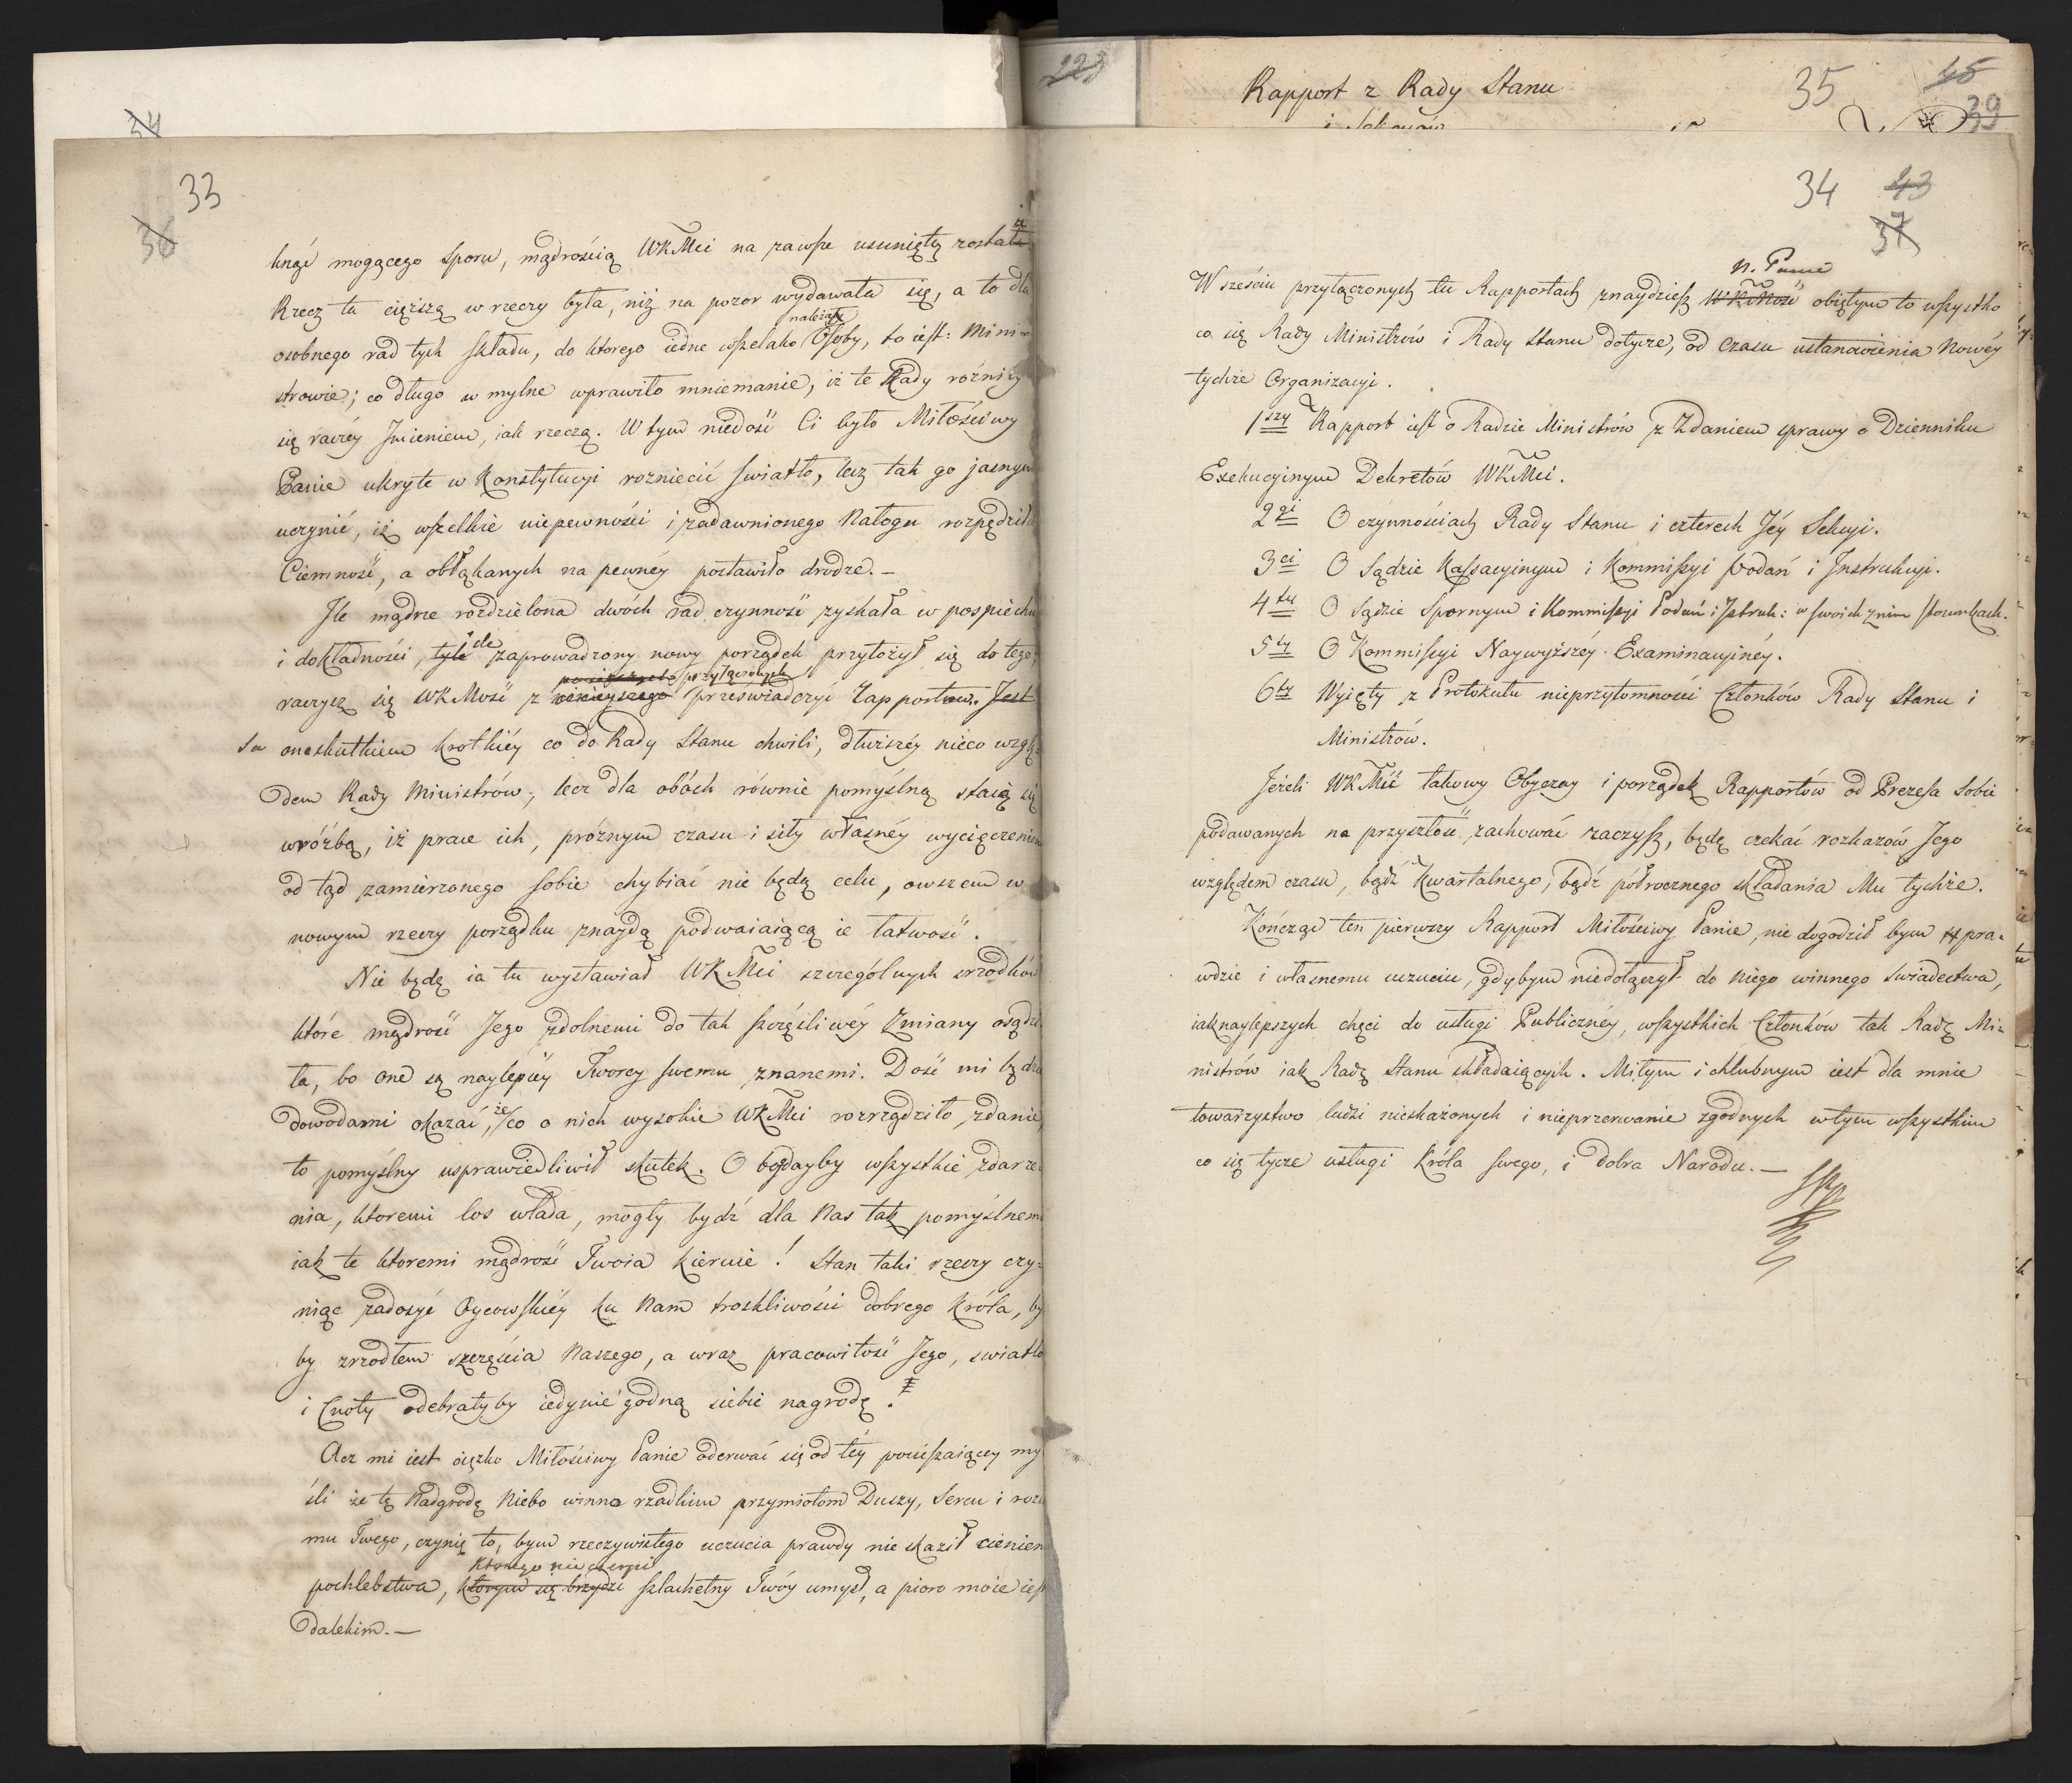 34
33
36
knąć mogącego sporu, mądrością WKMci na zawsze usunięty został
Rzecz ta cięższą w rzeczy była, niż na pozor wydawała się, a to dla
należały
osobnego rad tych składu, do ktorego iedne wszelako Osoby, to iest: Mini-
strowie; co długo w mylne wprawiło mniemanie, iż te Rady rożnią
się raczéy Imieniem, iak rzeczą. W tym niedość Ci było Miłościwy
Panie ukryte w Konstytucyi rozniecić swiatło, lecz tak go jasnym
uczynić, iż wszelkie niepewności i zadawnionego Nałogu rozpędziło
Ciemność, a obłąkanych na pewnéy postawiło drodze.—
Ile mądrze rozdzielona dwóch rad czynność zyskała w pospiechu
i dokładności, tyle ile zaprowadzony nowy porządek przyłożył się do tego,
przyłączonych
raczysz się WKMość z ninieyszego przeświadczyć Rapportow. Jest
Są one skutkiem krotkiéy co do Rady Stanu chwili, dłuższéy nieco wzglę-
dem Rady Ministrów, lecz dla obóch równie pomyślną staią się
wróżbą, iż prace ich, próżnym czasu i siły własnéy wycięczeniem
od tąd zamierzonego sobie chybiać nie będą celu, owszem w
nowym rzeczy porządku znaydą podwaiaiącą ie łatwość.
Nie będę ia tu wystawiał WKMci szczególnych srzodków
które mądrość Jego zdolnemi do tak szczęśliwéy Zmiany osądzi
ła, bo one są naylepiéy Tworcy swemu znanemi. Dość mi będzie
dowodami okazać, że co o nich wysokie WKMci rozrządziło zdanie,
to pomyślny usprawiedliwił skutek. O bogdayby wszystkie zdarze-
nia, ktoremi los włada, mogły bydź dla Nas tak pomyślnemi
iak te ktoremi mądrość Twoia kieruie! Stan taki rzeczy czy-
niąc zadosyć Oycowskiéy ku Nam troskliwości dobrego Króla, był
by zrzodłem szczęścia Naszego, a wraz pracowitość Jego, swiatło
i Cnoty odebrałyby iedynie godną siebie nagrodę.
Acz mi iest ciężko Miłościwy Panie oderwać się od téy pocieszaiącey my
śli że tę Nadgrodę Niebo winno rzadkim przymiotom Duszy, Sercu i rozu
mu Twego, czynię to, bym rzeczywistego uczucia prawdy nie skaził cieniem
Ktorego nie cierpi
pochlebstwa, ktorym się brzydzi szlachetny Twóy umysł, a pioro moie iest
dalekim.—
223
Rapport z Rady Stanu
35
45
39
34
43
37
N. Panie
W sześciu przyłączonych tu Rapportach znaydziesz WKMość obiętym to wszystko
co się Rady Ministrów i Rady Stanu dotycze, od czasu ustanowienia Nowéy
tychże Organizacyi.
1szy Rapport iest o Radzie Ministrów z Zdaniem sprawy o Dzienniku
Exekucyinym Dekretów WKMci.
2gi O czynnościach Rady Stanu i czterech Jéy Sekcyi.
3ci O Sądzie Kassacyinym i Kommissyi podań i Instrukcyi.
4ty O Sądzie Spornym i Kommissyi Podań i Instruk: w swoich z nim stosunkach.
5ty O Kommissyi Naywyższéy Examinacyinéy.
6ty Wyięty z Protokułu nieprzytomności Członków Rady Stanu i
Ministrów.
Jeżeli WKMść takowy Obyczay i porządek Rapportów od Prezesa Sobie
podawanych na przyszłość zachować raczysz, będę czekać rozkazów Jego
względem czasu, bądź Kwartalnego, bądź półrocznego składania Mu tychże.
Kończąc ten pierwszy Rapport Miłościwy Panie, nie dogodził bym pra-
wdzie i własnemu uczuciu, gdybym niedołączył do Niego winnego świadectwa,
iaknaylepszych chęci do usługi Publicznéy, wszystkich Członków tak Radę Mi-
nistrów iak Radę Stanu składaiących. Miłym i chlubnym iest dla mnie
towarzystwo ludzi nieskażonych i nieprzerwanie zgodnych w tym wszystkim
co się tycze usługi Króla swego, i dobra Narodu.—